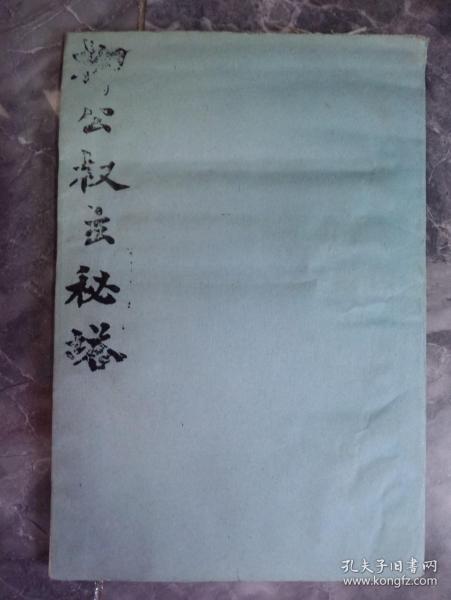 柳公权玄秘塔
孔夫子旧书网
www.kongfz.com